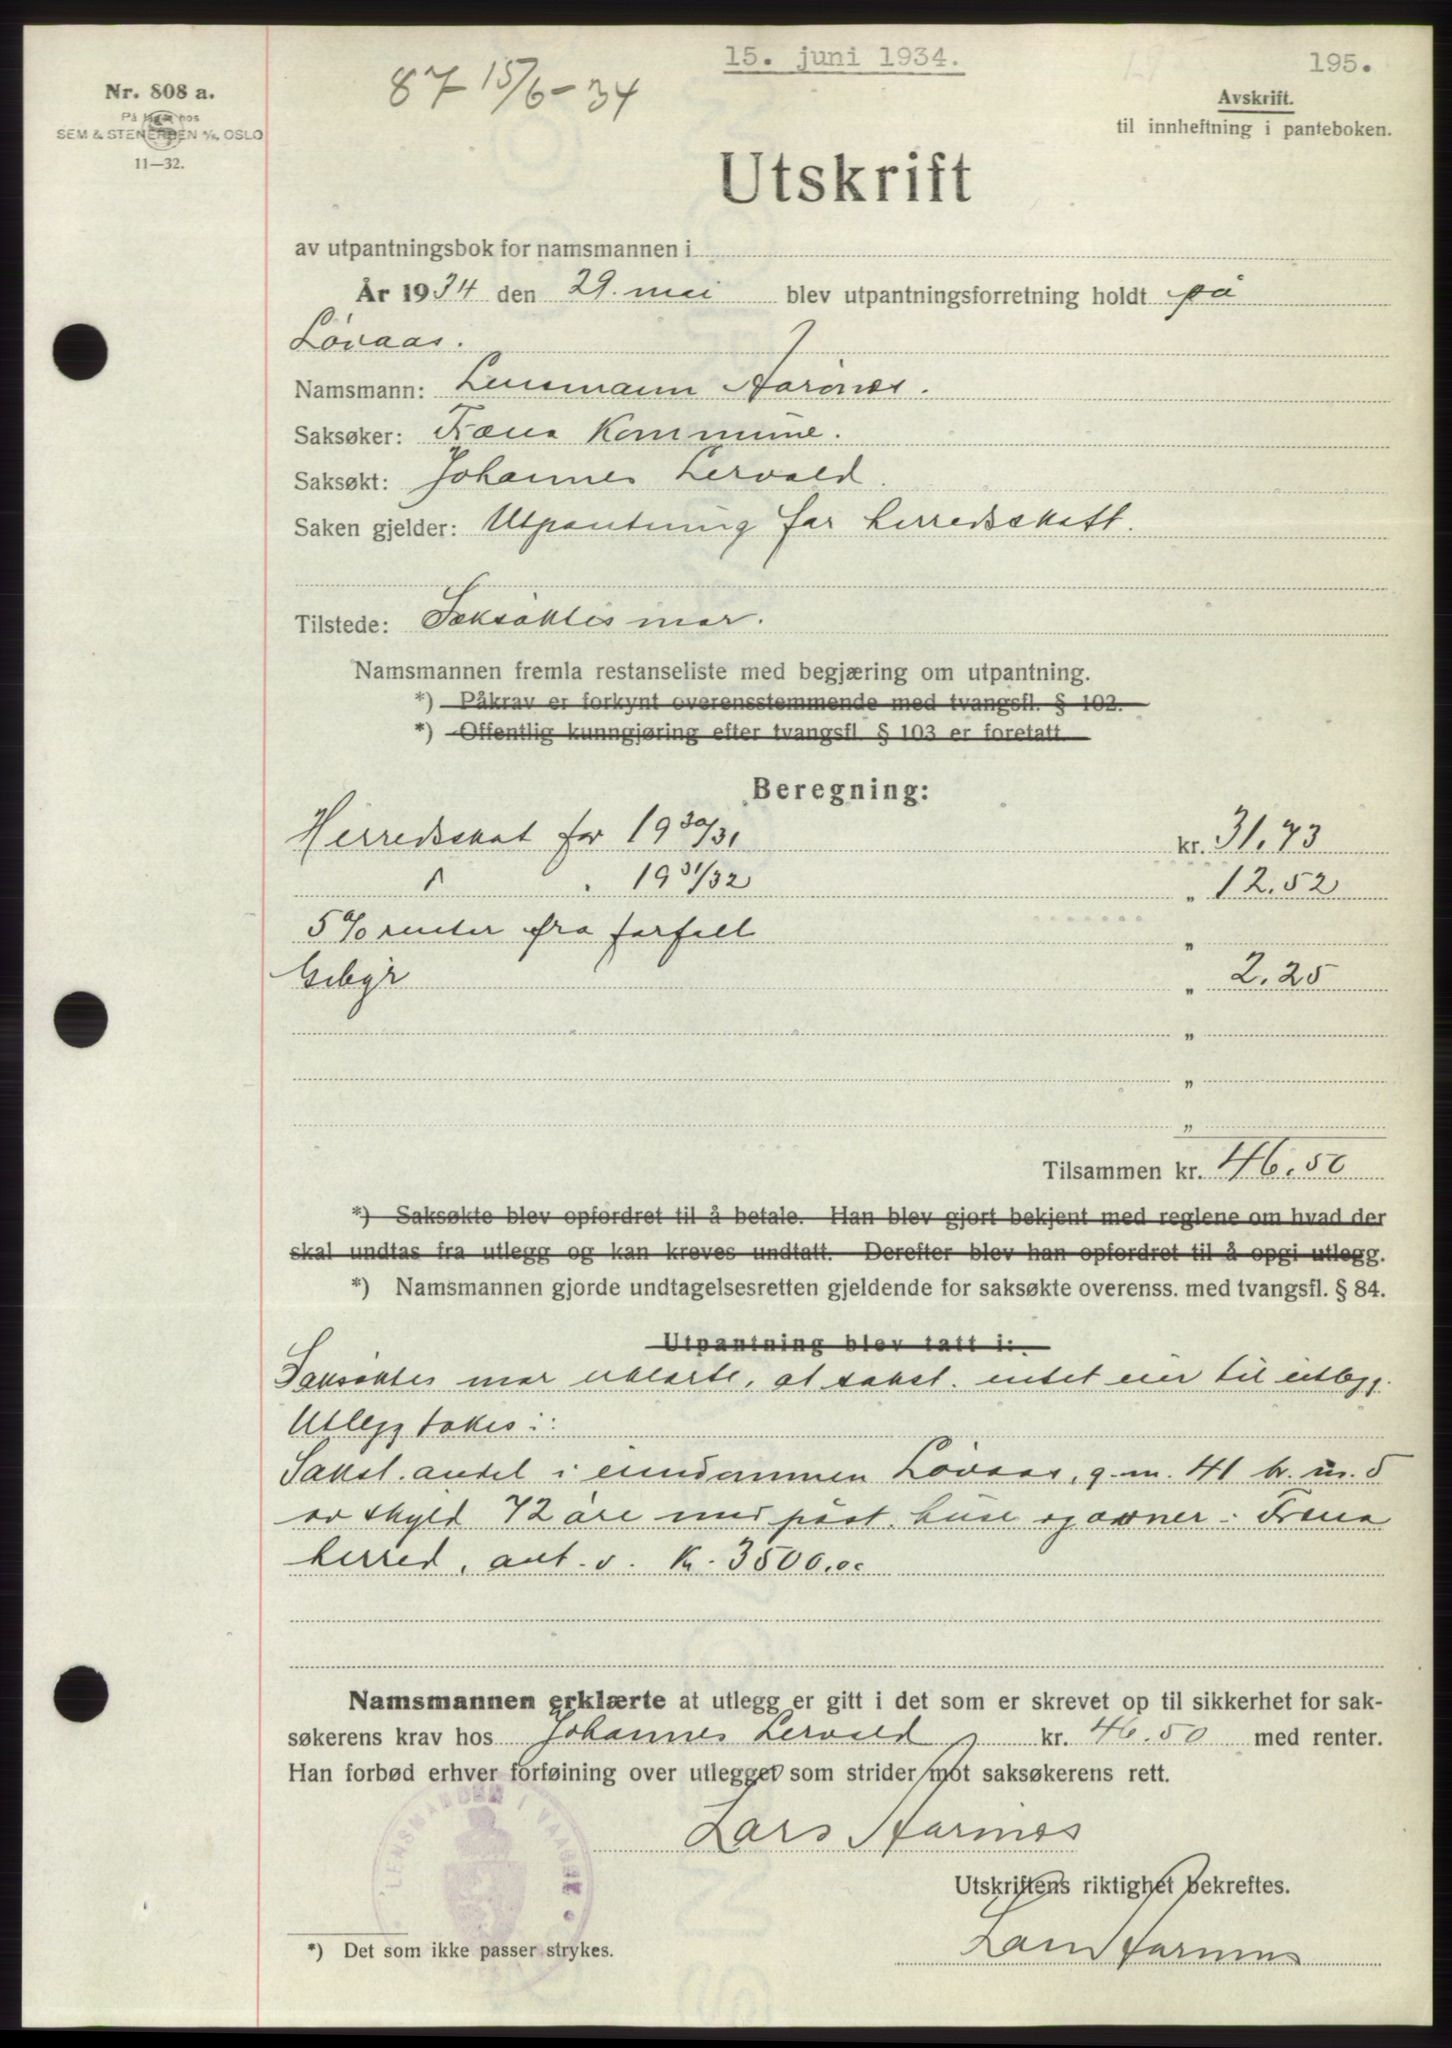 15. juni 1934.
195.
87 15/6-34
Nr. 808 a.
På lager hos
SEM & STENERSEN A/S, OSLO
11—32.
Avskrift.
til innheftning i panteboken.
Utskrift
av utpantningsbok for namsmannen i
År 1934 den 29. mai blev utpantningsforretning holdt på
Løvaas.
Namsmann: Lensmann Aarönes.
Saksøker: Fræna Kommune.
Saksøkt: Johannes Lervold.
Saken gjelder: Utpantning for herredsskatt.
Tilstede: Saksöktes mor.
Namsmannen fremla restanseliste med begjæring om utpantning.
*) Påkrav er forkynt overensstemmende med tvangsfl. § 102.
*) Offentlig kunngjøring efter tvangsfl. § 103 er foretatt
Beregning:
Herredsskat for 1930/31 kr. 31.73
" " 1931/32 " 12.52
5 % renter fra forfall "
Gebyr " 2.25
"
"
"
Tilsammen kr. 46.50
*) Saksøkte blev opfordret til å betale. Han blev gjort bekjent med reglene om hvad der
skal undtas fra utlegg og kan kreves undtatt. Derefter blev han opfordret til å opgi utlegg.
*) Namsmannen gjorde undtagelsesretten gjeldende for saksøkte overenss. med tvangsfl. § 84.
Utpantning blev tatt i:
Saksöktes mor erklærte, at sakst. intet eier til utlegg.
Utlegg takes i:
Sakst. andel i eiendommen Lövaas, g.nr. 41 br. nr. 5
av skyld 72 øre med påst. huse og ovner i Fræna
herred, ant. v. kr. 3500.00
Namsmannen erklærte at utlegg er gitt i det som er skrevet op til sikkerhet for sak-
søkerens krav hos Johannes Lervold kr. 46.50 med renter.
Han forbød erhver forføining over utlegget som strider mot saksøkerens rett.
Lars Aarönes
LENSMANDEN I VAAGØE
Utskriftens riktighet bekreftes.
Lars Aarönes
*) Det som ikke passer strykes.